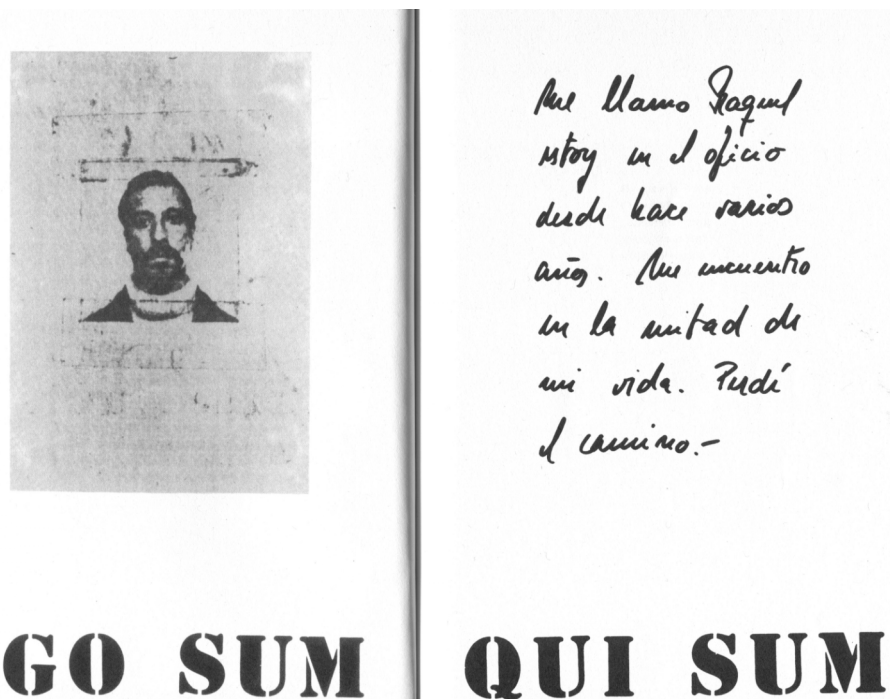 Me llamo Raquel
estoy en el oficio
desde hace varios
años. Me encuentro
en la mitad de
mi vida. Perdí
el camino.-
GO SUM
QUI SUM